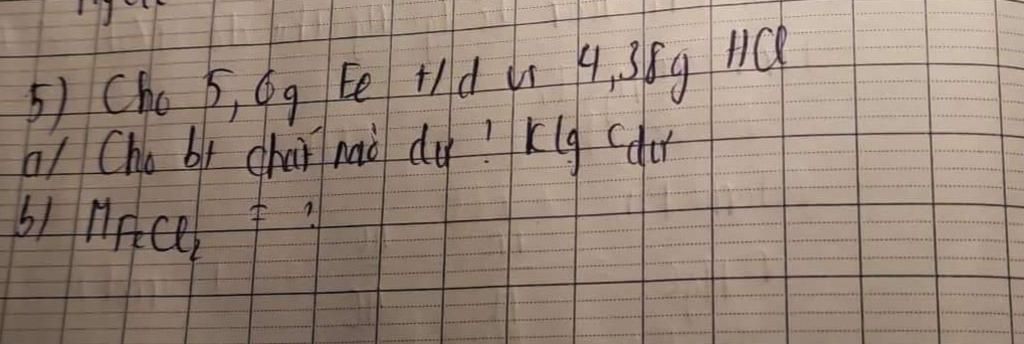 5) Cho 5,6g Fe t/d vs 4,38g HCl
a/ Cho bt chất nào dư ? Klg Cdư
b/ MFeCl2 = ?